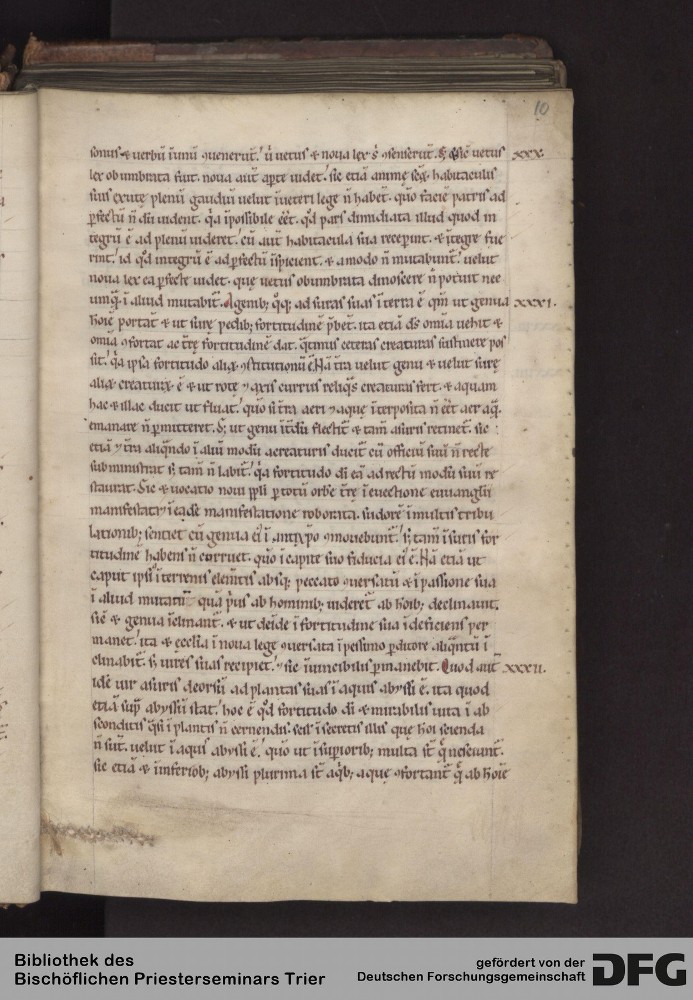 10
sonus ⁊ uerbū ı̄unū ꝯuenerūt. ubi uetus ⁊ noua lex s̄ ꝯsenserūt. sicē uetus xxx.
lex obumbrata fuit. noua aut̄ apte uidet. sic etiā anime habitaculis
suis exutę plenū gaudiū uelut ı̄ueteri lege n̄ habēt. quo faciē patris ad
ꝑfectū n̄ dū uident. qa ı̄possibile eēt. qd pars dimidiata illud quod in
tegrū ē ad plenū uideret. cū aut̄ habitacula sua recepint. ⁊ ı̄tegre fue
rint. id qd integrū ē ad ꝑfectū ı̄spicient. ⁊ amodo n̄ mutabunt. uelut
noua lex ea ꝑfecte uidet. quę uetus obumbrata dinoscere n̄ potuit nec
umq; ı̄ aliud mutabit̄. Agenib; qq; ad suras suas ı̄ terra ē qm̄ ut genua xxxi.
hoīe portāt ⁊ ut surę pedib; fortitudinē p̄bēt. ita etiā ds̄ omīa uehit ⁊
omīa ꝯfortat ac trę fortitudinē dat. qtinus ceteras creaturas sustinere pos
sit. qa ipsa fortitudo aliar̄ ꝯstitutionū ē. Nā tra uelut genu ⁊ uelut surę
aliar̄ creaturar̄ ē ⁊ ut rotę ⁊ axis currus reliqs creaturas fert. ⁊ aquam
hac ⁊ illac ducit ut fluat. quo si tra aeri ⁊ aquę ı̄terposita n̄ eēt aer aq̄
emanare n̄ ꝑmitteret. S; ut genu ı̄tdū flectit ⁊ tam̄ asuris retinet. sic
etiā ⁊ tra aliqndo ı̄ aliū modū acreaturis ducit cū officiū suū n̄ recte
subministrat s; tam̄ n̄ labit̄. qa fortitudo di eā ad rectū modū suū re
staurat. Sic ⁊ uocatio noui ppli ꝑ totū orbē trę ı̄ euectione euuangelii
manifestata ı̄ eadē manifestatione roborata. sudorē ı̄ multis tribu
lationib; sentiet cū genua ei ı̄ antixpo ꝯmouebunt. s; tam̄ ı̄ suris for
titudinē habens n̄ corruet. quo ı̄ capite suo fiducia ei ē. Nā etiā ut
caput ipsi ı̄ terrenis elemtis absq; peccato ꝯuersatū ⁊ ı̄ passione sua
ı̄ aliud mutatū quā p̄us ab hominib; uideret̄ ab hoīb; declinauit.
sic ⁊ genua ı̄clinant. ⁊ ut deı̄de ı̄ fortitudine sua ı̄deficiens per
manet. ita ⁊ ecclīa ı̄ noua lege ꝯuersata ı̄ pessimo ꝑditore aliqntū ı̄
clinabit. s; uires suas recipiet. ⁊ sic ı̄uincibilis ꝑmanebit. Quod aut̄ xxxii.
idē uir asuris deorsū ad plantas suas ı̄ aquis abyssi ē. ita quod
etiā sup̄ abyssū stat. hoc ē qd fortitudo di ⁊ mirabilis uita ı̄ ab
sconditis q̄si ı̄ plantis n̄ cernendis. scil' ı̄ secretis illis quę hoī scienda
n̄ sūt. uelut ı̄ aquis abyssi ē. quo ut ı̄ superiorib; multa st̄ q̄ nesciunt.
sic etiā ⁊ ı̄ inferiorib; abyssi plurima st̄ aqb; aque ꝯfortant̄ q̄ ab hoīe
Bibliothek des
Bischöflichen Priesterseminars Trier
gefördert von der
Deutschen Forschungsgemeinschaft
DFG